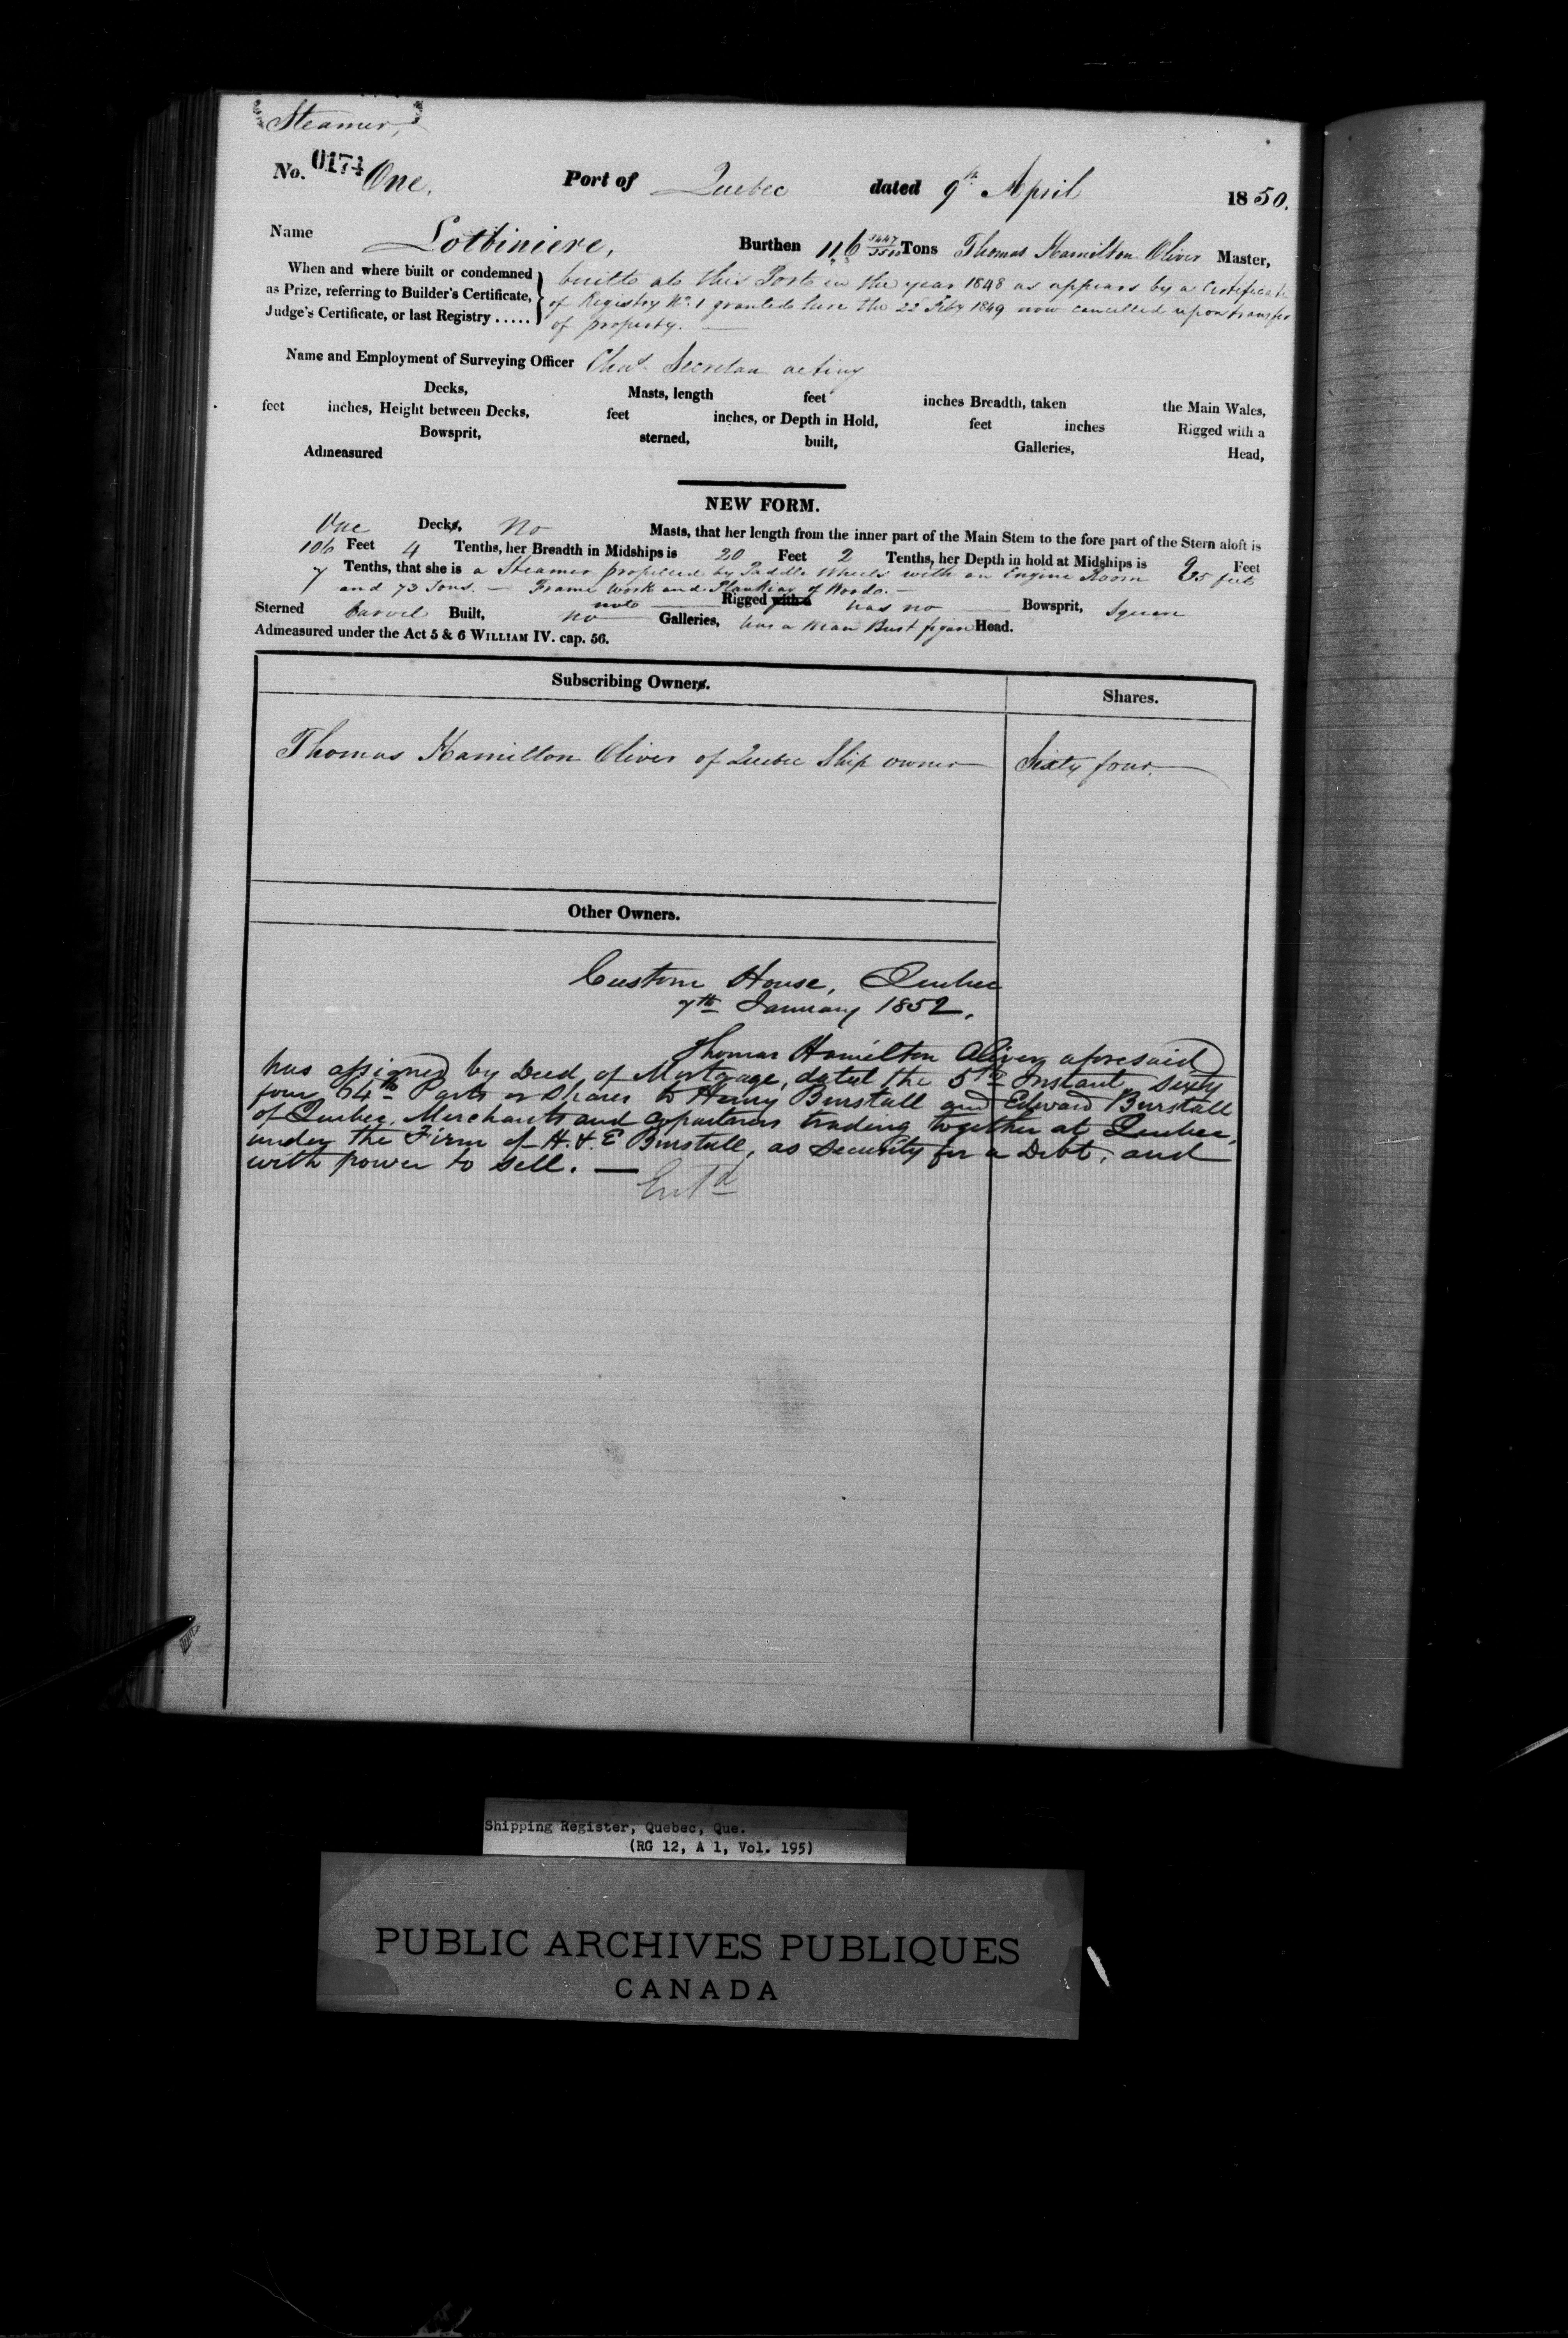 Steamer,
No. 0174 One. Port of Quebec dated 9th April 1850.
Name Lotbiniere, Burthen 116 3447/3500 Tons Thomas Hamilton Oliver Master,
When and where built or condemned
as Prize, referring to Builder's Certificate,
Judge's Certificate, or last Registry .....
built at this Port in the year 1848 as appears by a Certificate
of Registry No. 1 granted here the 22d Feby 1849 now cancelled upon transfer
of property.
Name and Employment of Surveying Officer Chas. Secretan acting
Decks, Masts, length feet inches Breadth, taken the Main Wales,
feet inches, Height between Decks, feet inches, or Depth in Hold, feet inches Rigged with a
Bowsprit, sterned, built, Galleries, Head,
Admeasured
NEW FORM.
One Decks, No Masts, that her length from the inner part of the Main Stem to the fore part of the Stern aloft is
106 Feet 4 Tenths, her Breadth in Midships is 20 Feet 2 Tenths, her Depth in hold at Midships is Feet
7 Tenths, that she is a Steamer propelled by Paddle Wheels with an Engine Room 35 feet
and 73 Tons. — Frame work and Planking of Wood. —
not Rigged with a has no Bowsprit, Square
Sterned Carvel Built, no Galleries, has a Man Bust figure Head.
Admeasured under the Act 5 & 6 WILLIAM IV. cap. 56.
Subscribing Owners. Shares.
Thomas Hamilton Oliver of Quebec Ship owner Sixty four.
Other Owners.
Custom House, Quebec
7th January 1852.
Thomas Hamilton Oliver aforesaid
has assigned by Deed of Mortgage, dated the 5th Instant sixty
four 64th Parts or Shares to Henry Burstall and Edward Burstall
of Quebec, Merchants and Copartners trading together at Quebec,
under the Firm of H. & E Burstall, as Security for a Debt, and
with power to sell. —
Entd
Shipping Register, Quebec, Que.
(RG 12, A 1, Vol. 195)
PUBLIC ARCHIVES PUBLIQUES
CANADA